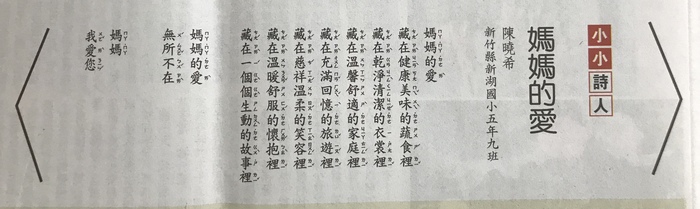 小小詩人
媽媽的愛
陳曉希
新竹縣新湖國小五年九班
媽媽的愛
藏在健康美味的蔬食裡
藏在乾淨清潔的衣裳裡
藏在溫馨舒適的家庭裡
藏在充滿回憶的旅遊裡
藏在慈祥溫柔的笑容裡
藏在溫暖舒服的懷抱裡
藏在一個個生動的故事裡
媽媽的愛
無所不在
媽媽
我愛您